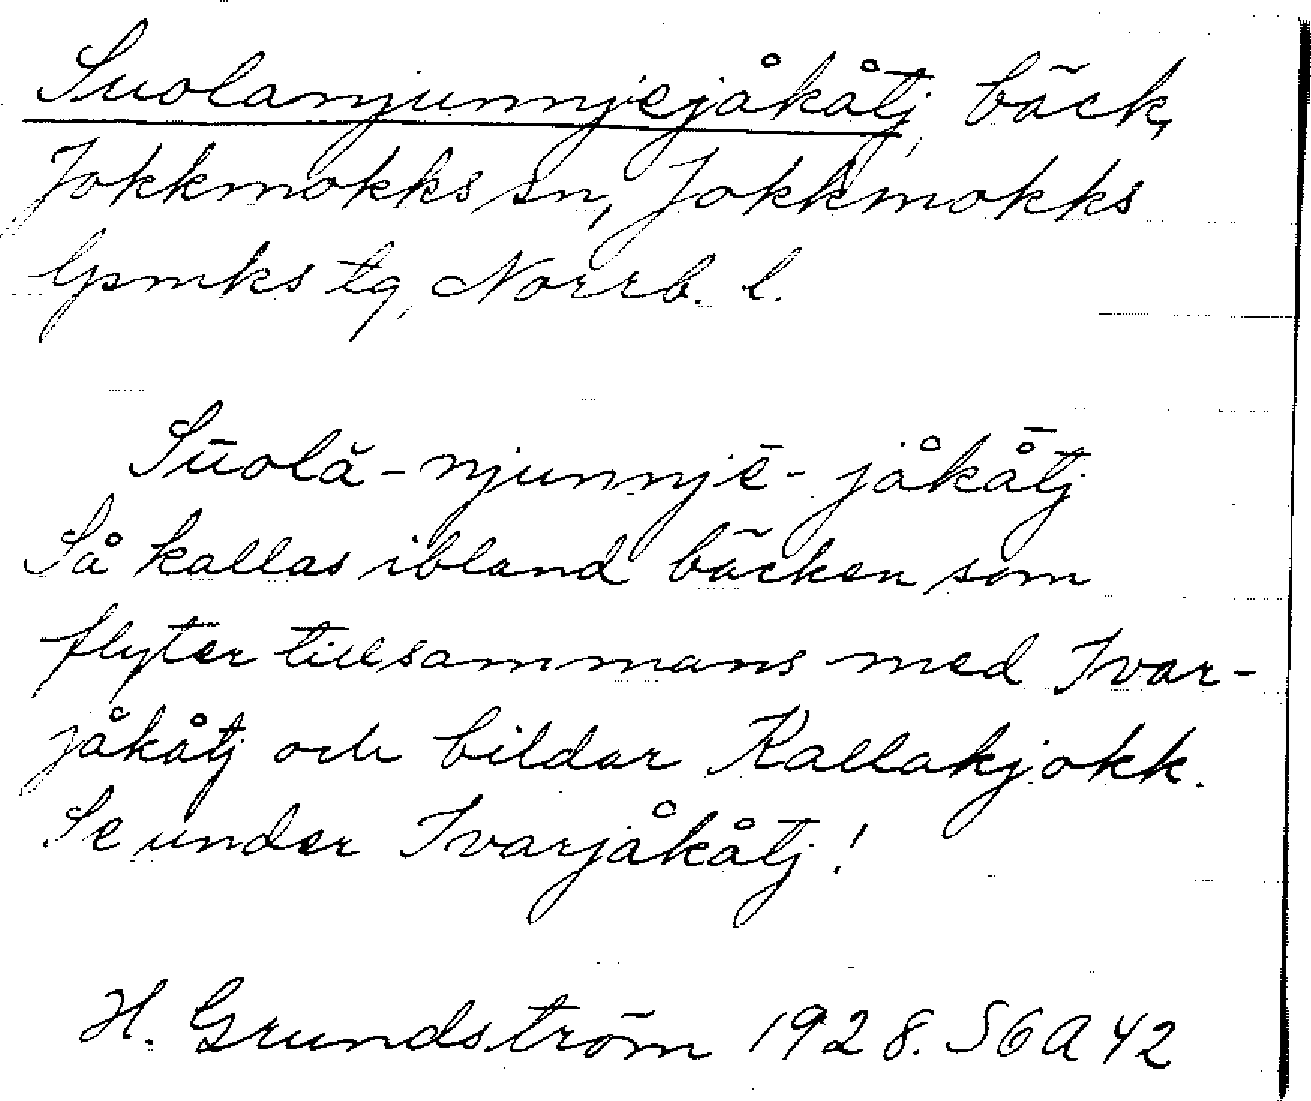 Suolanjunnjejåkåtj, bäck,
Jokkmokks sn, Jokkmokks
lpmks tg, Norrb. l.
Sūolă-njunnjē-jåkå̄tj
Så kallas ibland bäcken som
flyter tillsammans med Ivar-
jåkåtj och bildar Kallakjokk.
Se under Ivarjåkåtj!
H. Grundström 1928. SGA 42